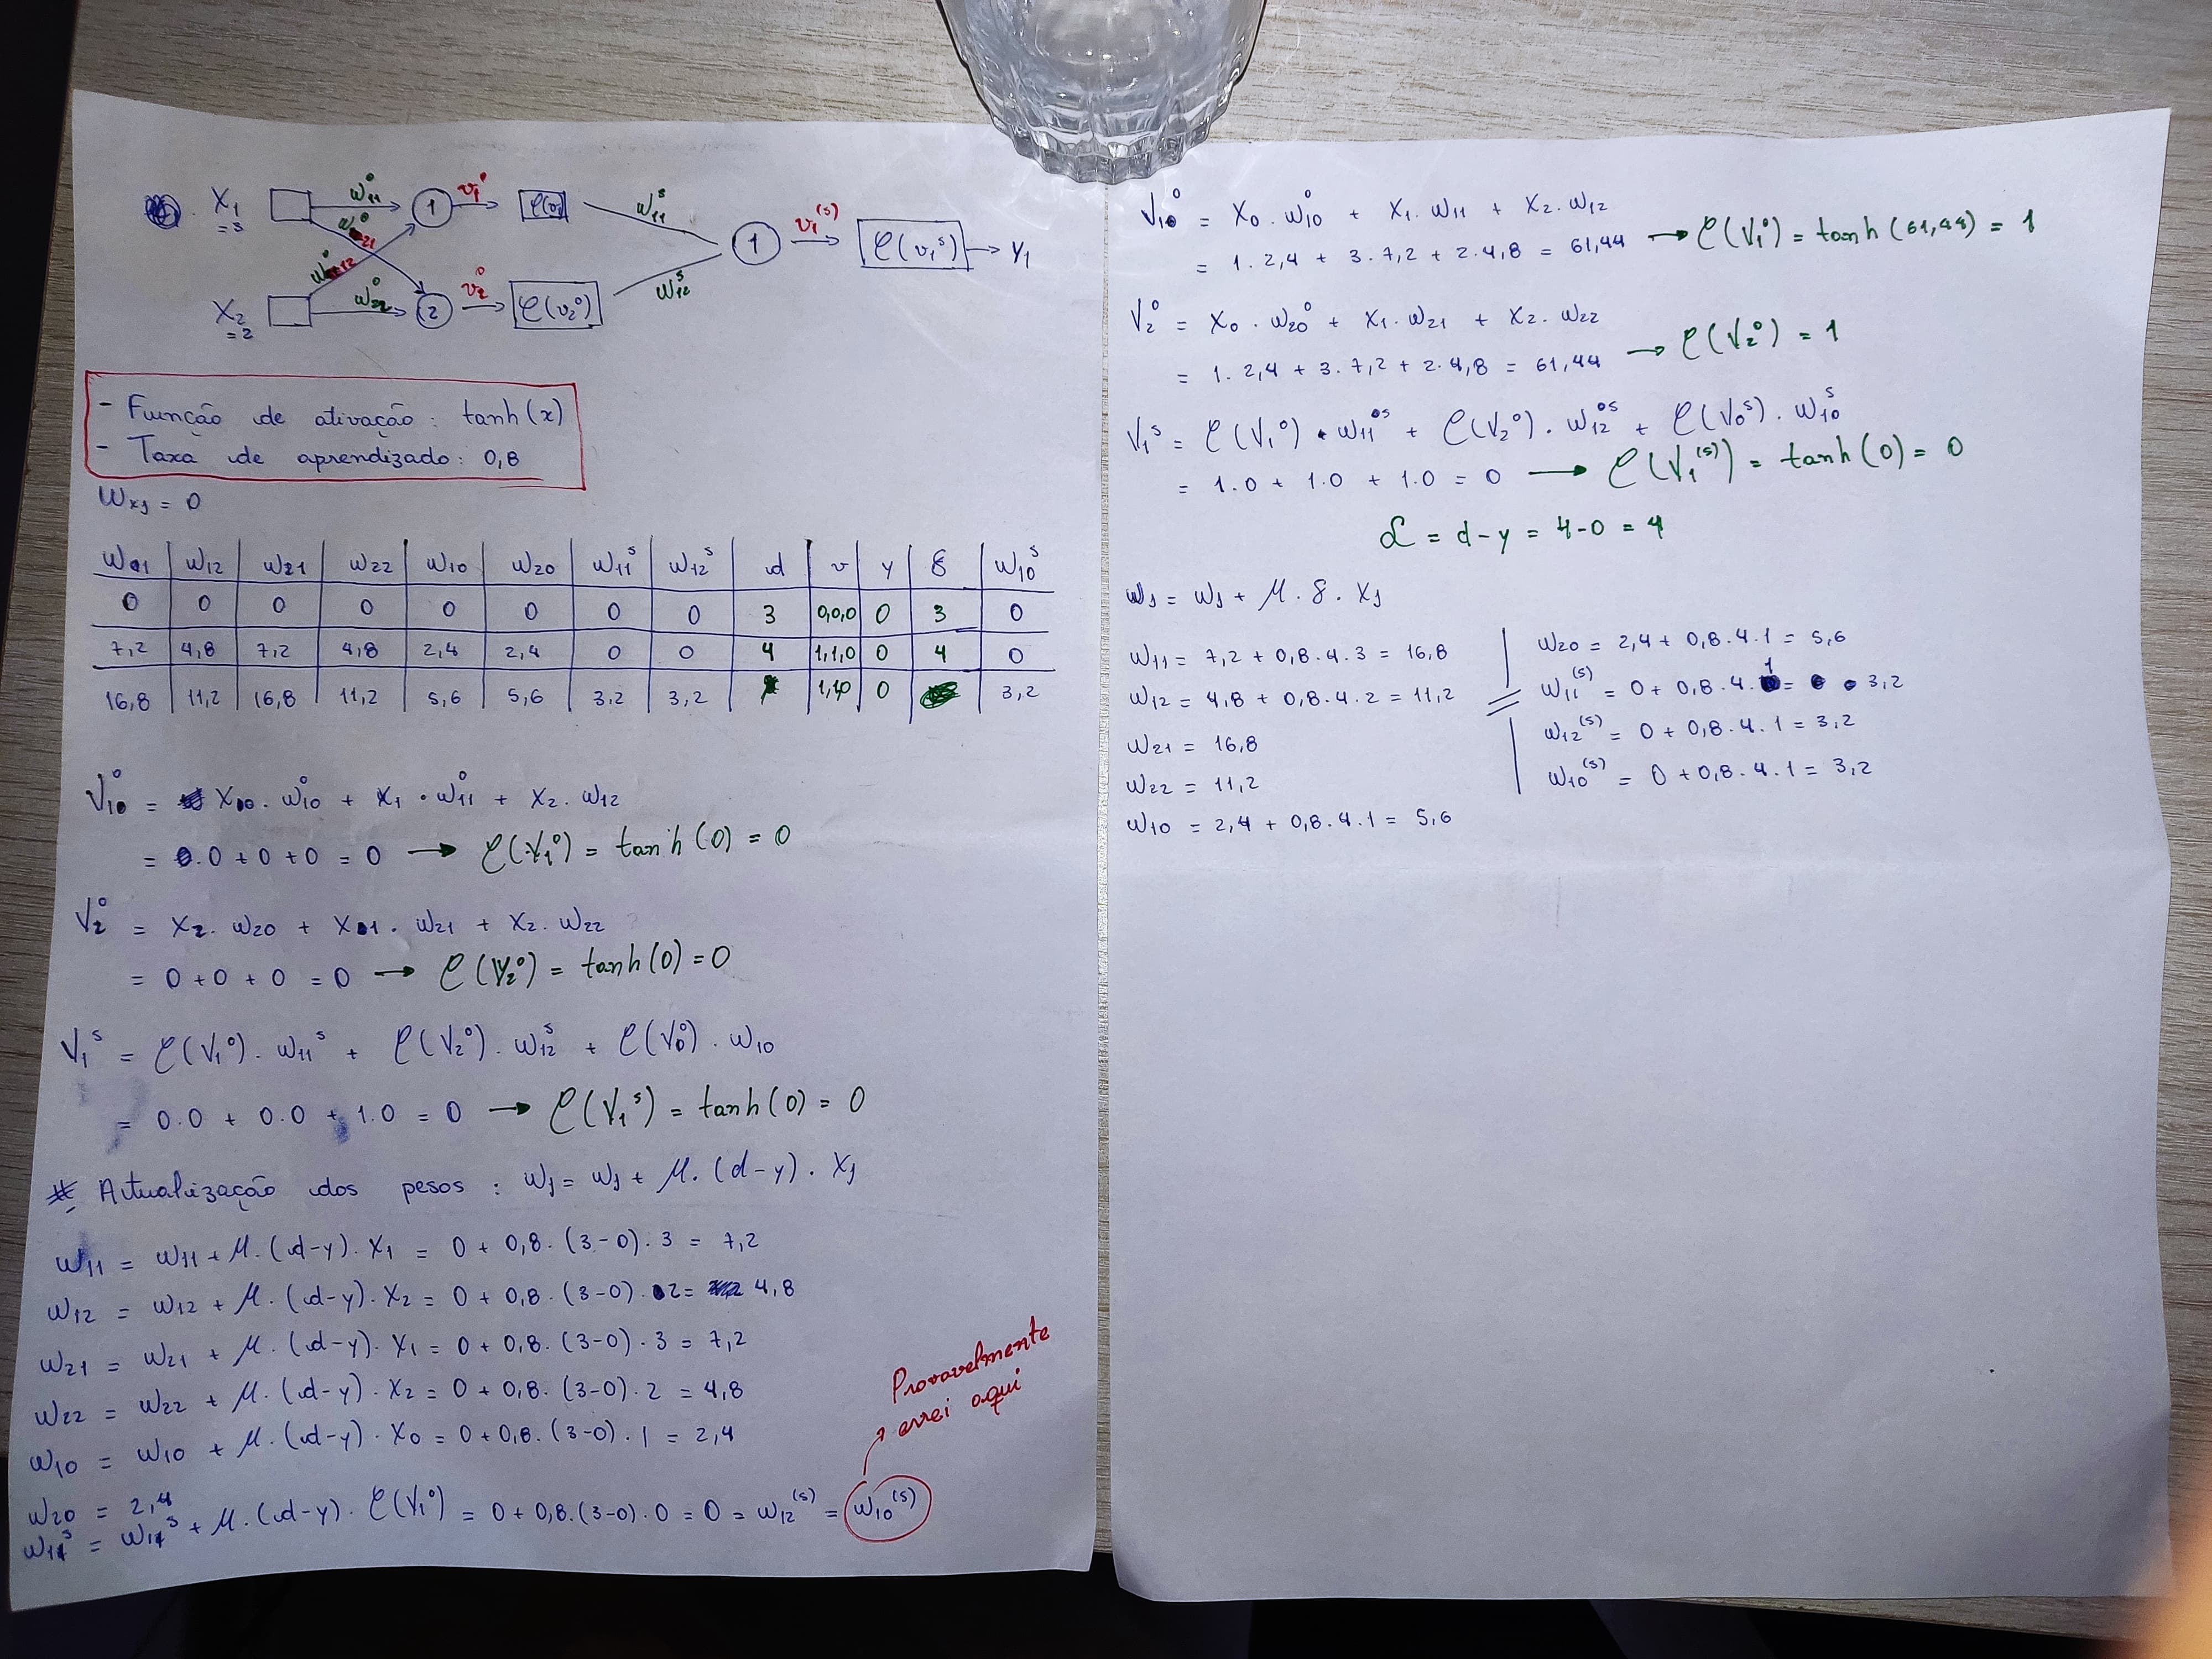 X₁ = 3
w₁₁⁰
w₂₁⁰
w₁₂⁰
w₂₂⁰
X₂ = 2
1
2
v₁⁰
v₂⁰
φ(v₂⁰)
w₁₁ˢ
w₁₂ˢ
1
v₁⁽ˢ⁾
φ(v₁ˢ)
Y₁
- Função de ativação: tanh(x)
- Taxa de aprendizado: 0,8
Wxj = 0
w₀₁ | w₁₂ | w₂₁ | w₂₂ | w₁₀ | w₂₀ | w₁₁ˢ | w₁₂ˢ | d | v | y | δ | w₁₀ˢ
0 | 0 | 0 | 0 | 0 | 0 | 0 | 0 | 3 | 0,0,0 | 0 | 3 | 0
7,2 | 4,8 | 7,2 | 4,8 | 2,4 | 2,4 | 0 | 0 | 4 | 1,1,0 | 0 | 4 | 0
16,8 | 11,2 | 16,8 | 11,2 | 5,6 | 5,6 | 3,2 | 3,2 | 1,1,0 | 0 | 3,2
V₁₀⁰ = X₀ . w₁₀⁰ + X₁ . w₁₁⁰ + X₂ . w₁₂
= 0.0 + 0 + 0 = 0 → φ(V₁⁰) = tanh(0) = 0
V₂⁰ = X₂ . w₂₀ + X₁ . w₂₁ + X₂ . w₂₂
= 0 + 0 + 0 = 0 → φ(V₂⁰) = tanh(0) = 0
V₁ˢ = φ(V₁⁰) . w₁₁ˢ + φ(V₂⁰) . w₁₂ˢ + φ(V₀⁰) . w₁₀
= 0.0 + 0.0 + 1.0 = 0 → φ(V₁ˢ) = tanh(0) = 0
* Actualização dos pesos : wj = wj + μ. (d-y) . Xj
w₁₁ = w₁₁ + μ. (d-y) . X₁ = 0 + 0,8. (3-0) . 3 = 7,2
w₁₂ = w₁₂ + μ. (d-y) . X₂ = 0 + 0,8. (3-0) . 2 = 4,8
w₂₁ = w₂₁ + μ. (d-y) . X₁ = 0 + 0,8. (3-0) . 3 = 7,2
w₂₂ = w₂₂ + μ. (d-y) . X₂ = 0 + 0,8. (3-0) . 2 = 4,8
w₁₀ = w₁₀ + μ. (d-y) . X₀ = 0 + 0,8. (3-0) . 1 = 2,4
w₂₀ = 2,4
w₁₁ˢ = w₁₁ˢ + μ. (d-y) . φ(V₁⁰) = 0 + 0,8. (3-0) . 0 = 0 = w₁₂⁽ˢ⁾ = w₁₀⁽ˢ⁾
Provavelmente
errei aqui
V₁₀⁰ = X₀ . w₁₀⁰ + X₁ . w₁₁ + X₂ . w₁₂
= 1. 2,4 + 3. 7,2 + 2. 4,8 = 61,44 → φ(V₁⁰) = tanh(61,44) = 1
V₂⁰ = X₀ . w₂₀⁰ + X₁ . w₂₁ + X₂ . w₂₂
= 1. 2,4 + 3. 7,2 + 2. 4,8 = 61,44 → φ(V₂⁰) = 1
V₁ˢ = φ(V₁⁰) . w₁₁ˢ + φ(V₂⁰) . w₁₂ˢ + φ(V₀ˢ) . w₁₀ˢ
= 1.0 + 1.0 + 1.0 = 0 → φ(V₁⁽ˢ⁾) = tanh(0) = 0
δ = d-y = 4-0 = 4
wj = wj + μ. δ. Xj
w₁₁ = 7,2 + 0,8. 4. 3 = 16,8
w₁₂ = 4,8 + 0,8. 4. 2 = 11,2
w₂₁ = 16,8
w₂₂ = 11,2
w₁₀ = 2,4 + 0,8. 4. 1 = 5,6
w₂₀ = 2,4 + 0,8. 4. 1 = 5,6
w₁₁⁽ˢ⁾ = 0 + 0,8. 4. 1 = 3,2
w₁₂⁽ˢ⁾ = 0 + 0,8. 4. 1 = 3,2
w₁₀⁽ˢ⁾ = 0 + 0,8. 4. 1 = 3,2